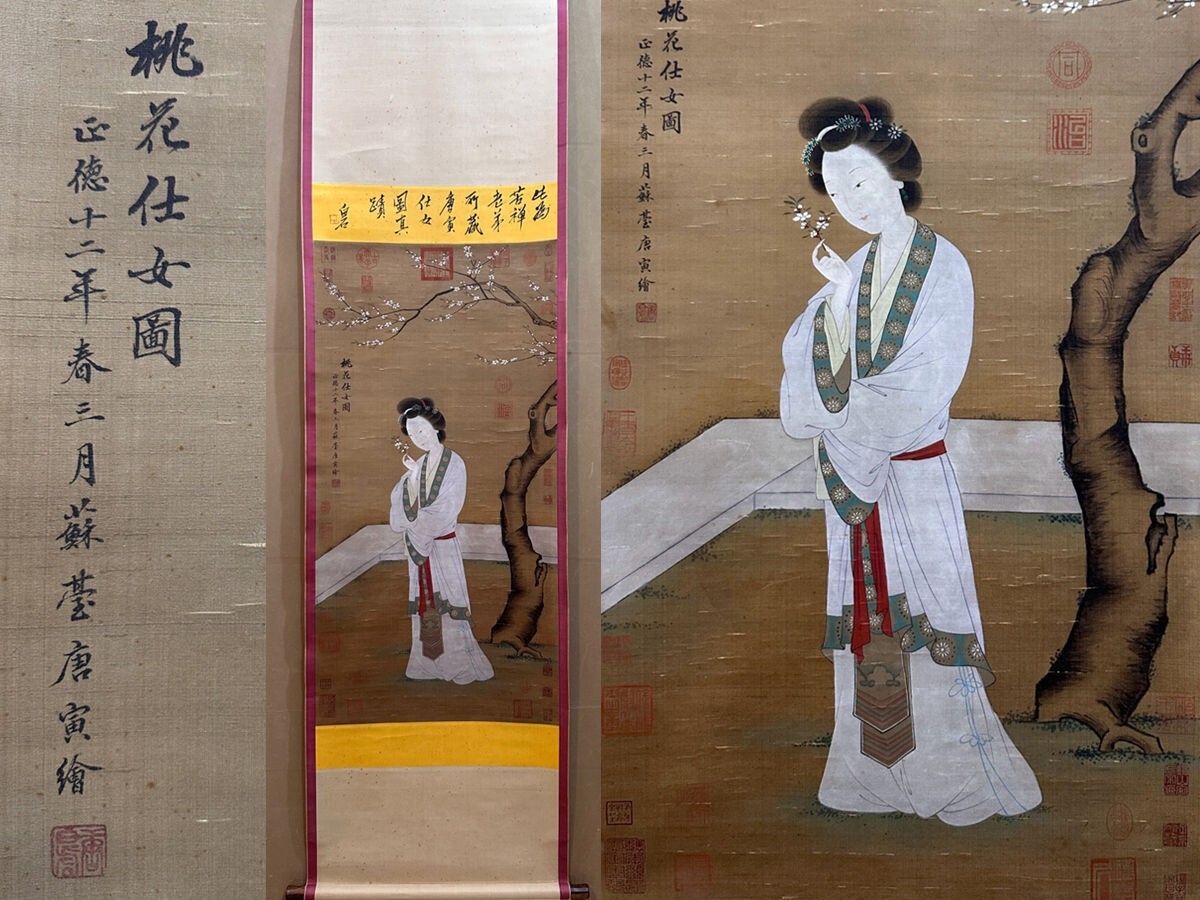 桃花仕女圖
正德十二年春三月蘇臺唐寅繪
此為
苦禪
老弟
所藏
唐寅
仕女
圖真
蹟
白石
桃花仕女圖
正德十二年春三月蘇臺唐寅繪
桃花仕女圖
正德十二年春三月蘇臺唐寅繪